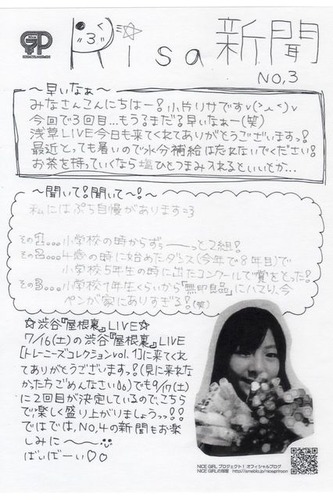 Risa新聞
NO,3
〜早いなぁ〜
みなさんこんにちはー!小片リサですv(>ω<)v
今回で3回目…もうるまだる早いなぁー(笑)
浅草LIVE今日も来てくれてありがとうございますっ。!
最近とっても暑いので水分補給はたれないでください♪
お茶を持っていくなら塩ひとつまみ入れるといいとか…
〜聞いて!聞いて〜!〜
私にはぷち自慢があります=3
その1…小学校の時からずっーーっと2組!
その2…4歳の時に始めたダンス(今年で8年目)で
小学校5年生の時に出たコンクールで"賞"をとった!
その3…小学校1年生くらいから"無印良品"にハマり、今
ペンが家にありすぎる!(笑)
☆渋谷『屋根裏』LIVE☆
7/16(土)の渋谷『屋根裏』LIVE
[トレーニーズコレクションvol.1]に来てくれ
てありがとうございます。!(見に来れな
かった方ごめんなさい)でも9/17(土)
に2回目が決定しているので、こちら
で楽しく盛り上がりましょうっ♪!!
ではでは、NO,4の新聞もお楽
しみに〜
ばいばーい♡♡
NICE GIRL プロジェクト! オフィシャルブログ
NICE GIRLの部屋